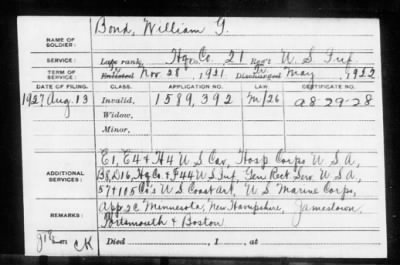 Bond, William G.
NAME OF SOLDIER:
SERVICE: Late rank, Hq Co. 21 Reg't U S Inf.
TERM OF SERVICE: Enlisted Nov 28, 1921, Discharged May, 1922
DATE OF FILING. CLASS. APPLICATION NO. LAW. CERTIFICATE NO.
1927 Aug. 13 Invalid, 1589,392 M/26 a8-29-28
Widow,
Minor,
E1, E4 & H4 U S Cav, Hosp Corps U S A,
ADDITIONAL SERVICES: B8, D16, Hq Co & F44 U S Inf, Gen Rect Serv U S A,
57 & 115 Co's U S Coast Art, U S Marine Corps,
REMARKS: App 2C Minnesota, New Hampshire, Jamestown,
Portsmouth & Boston
CK Died , 1 , at